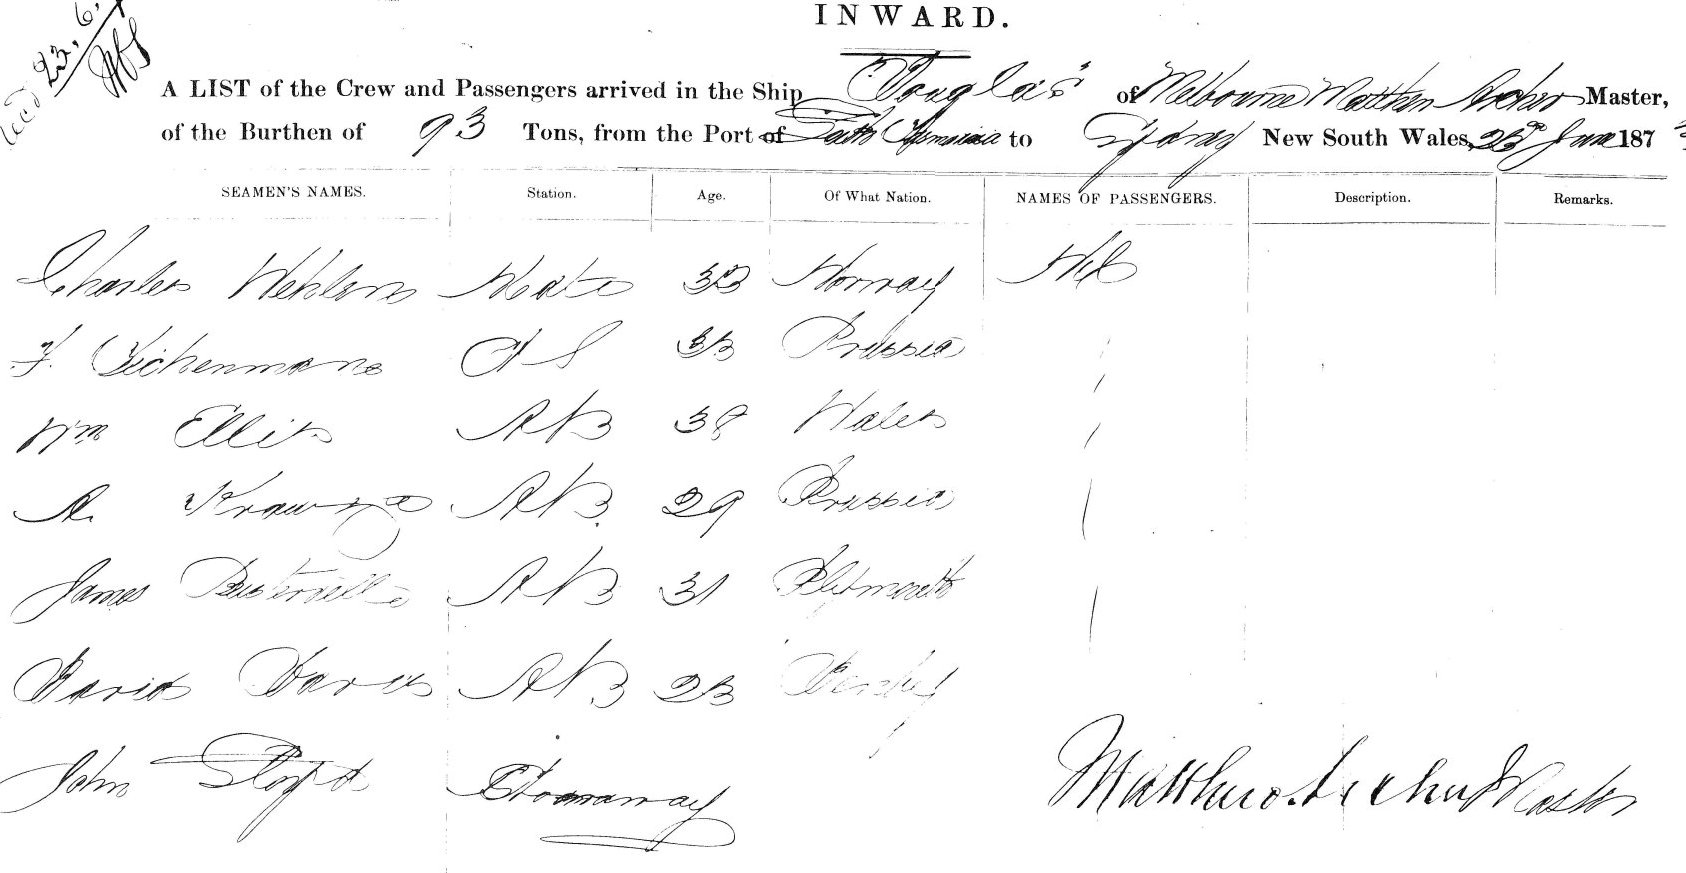 INWARD.
23. 6.
A LIST of the Crew and Passengers arrived in the Ship Douglas of Melbourne Matthew Archer Master,
of the Burthen of 93 Tons, from the Port of South to Sydney New South Wales, June 187
SEAMEN'S NAMES. Station. Age. Of What Nation. NAMES OF PASSENGERS. Description. Remarks.
Charles Mate Norway Nil
F. O S 33 Prussia
Wm Ellis AB 38 Wales
A. AB 29 Prussia
James AB 31 Plymouth
David Davis AB 23
John Stowaway
Matthew Archer Master